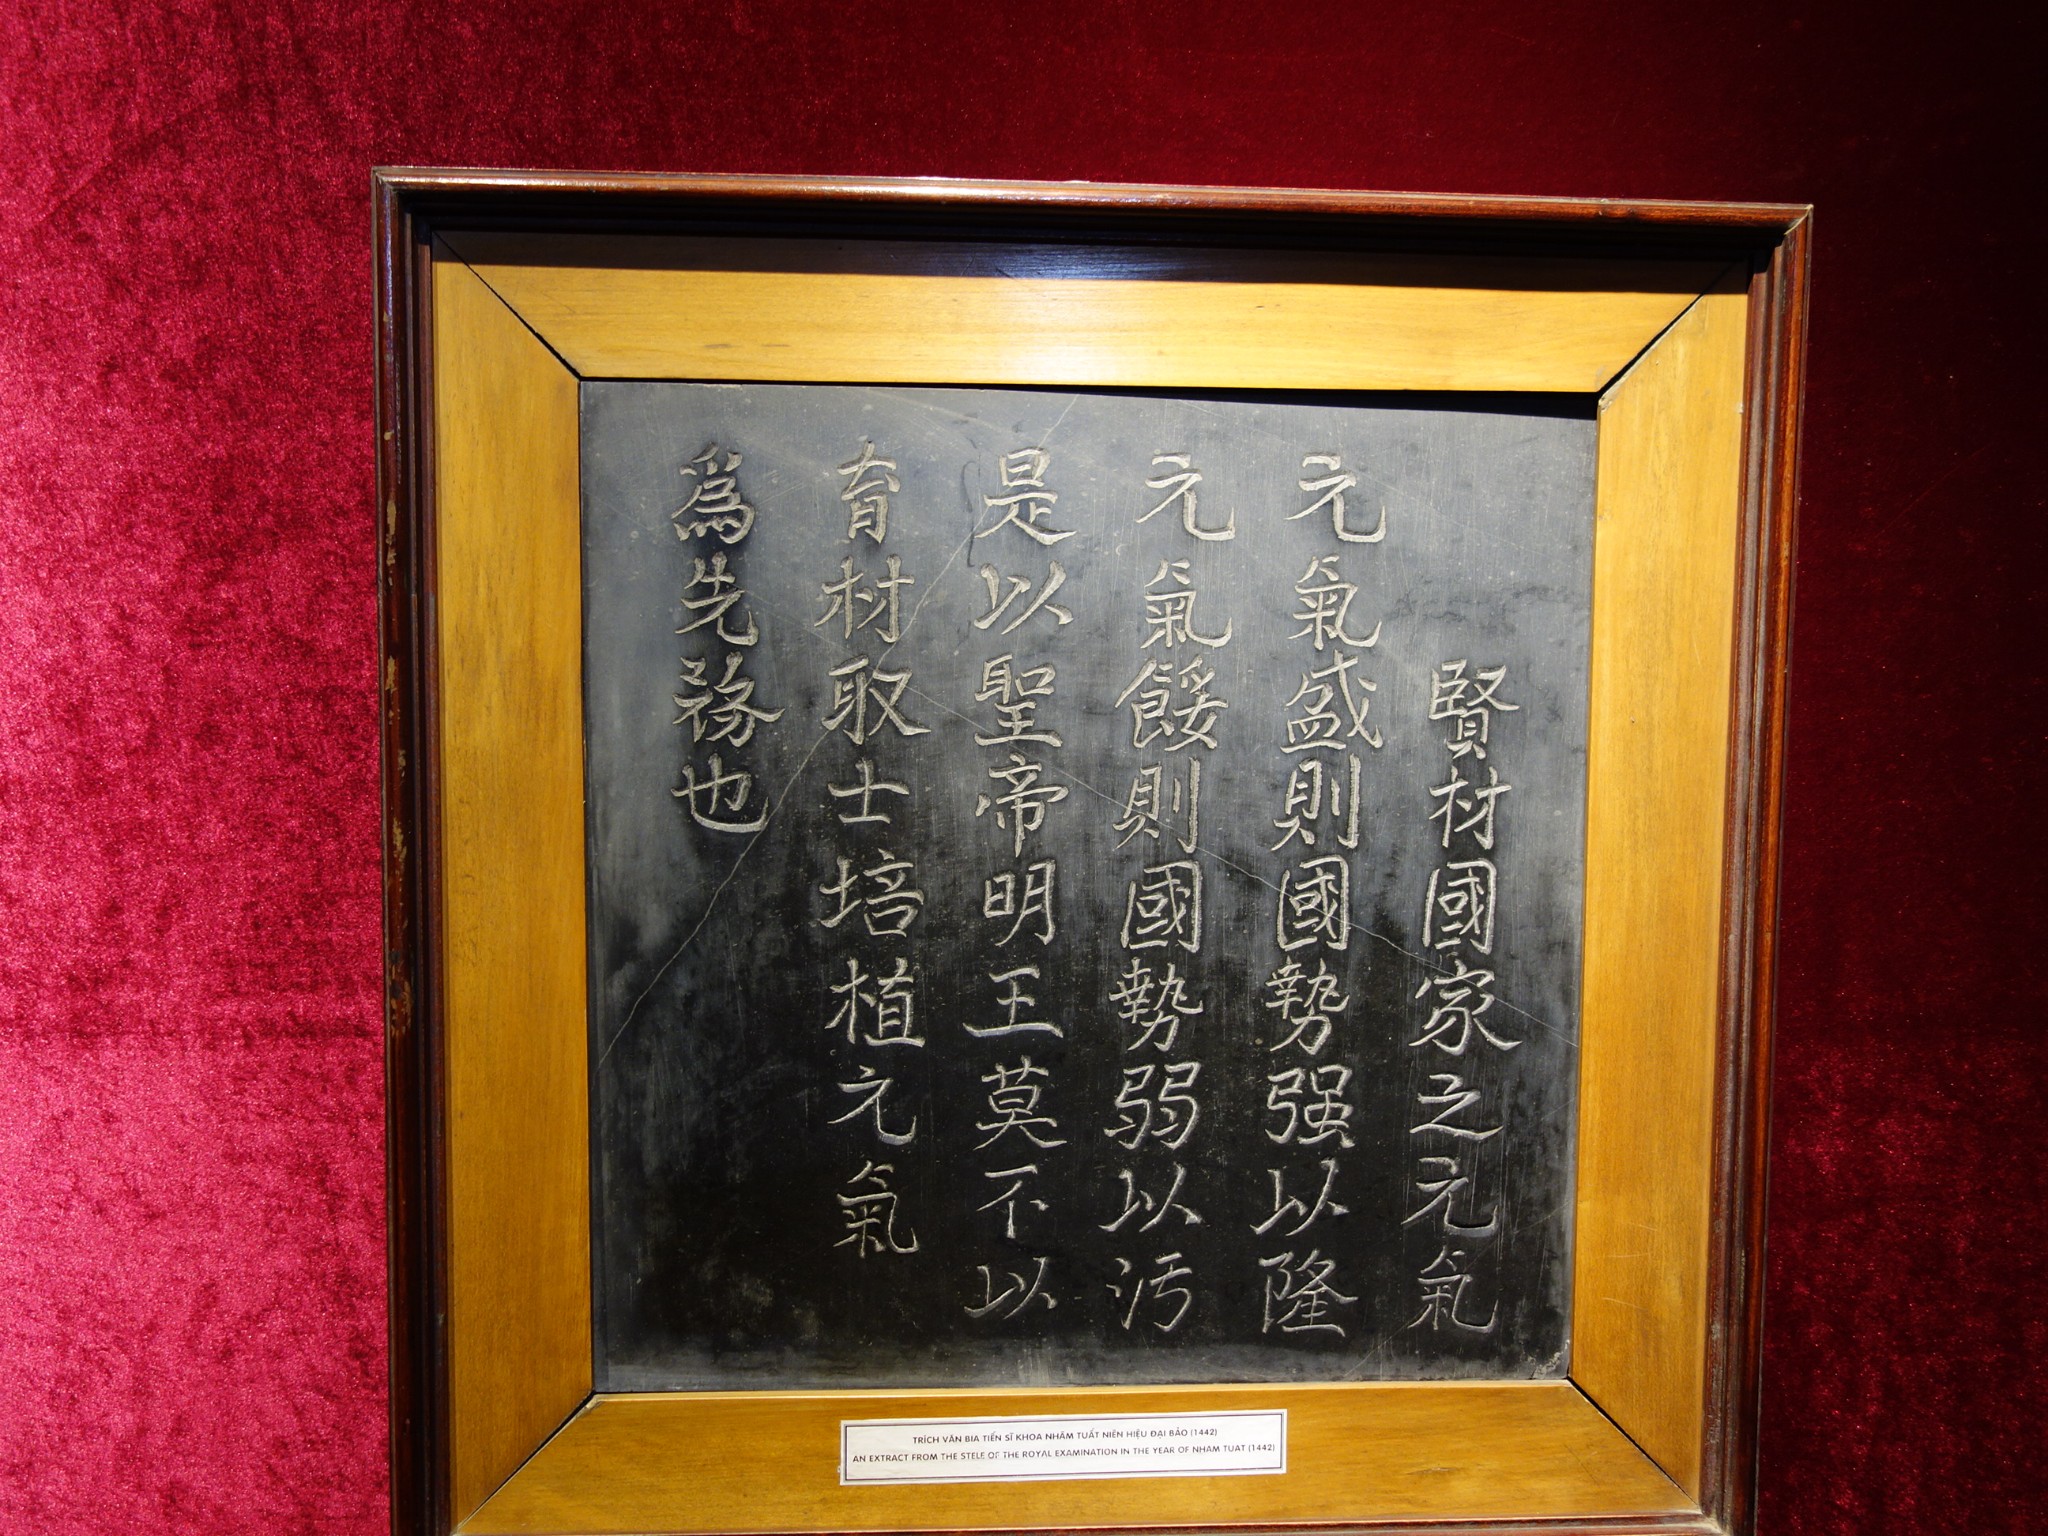 賢材國家之元氣
元氣盛則國勢强以隆
元氣餒則國勢弱以汚
是以聖帝明王莫不以
育材取士培植元氣
爲先務也
TRÍCH VĂN BIA TIẾN SĨ KHOA NHÂM TUẤT NIÊN HIỆU ĐẠI BẢO (1442)
AN EXTRACT FROM THE STELE OF THE ROYAL EXAMINATION IN THE YEAR OF NHAM TUAT (1442)